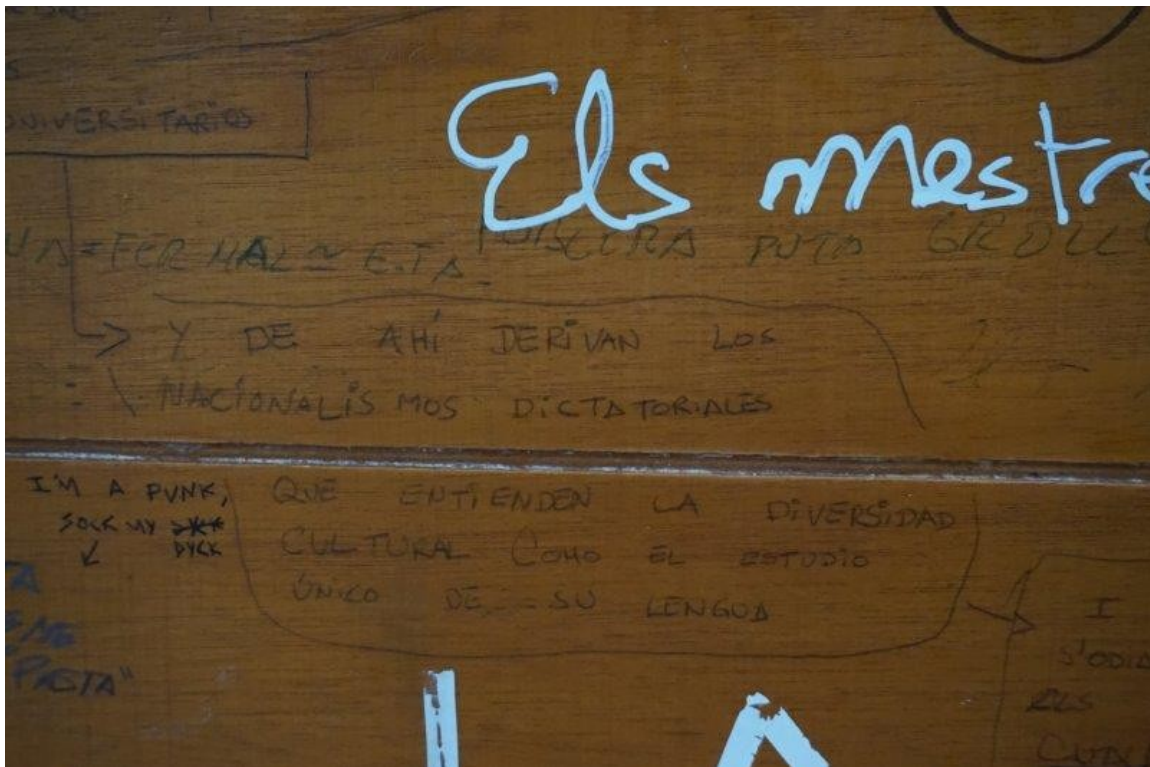 UNIVERSITARIOS
Els mestre
FER MAL E.T.A. PUTA
Y DE AHÍ DERIVAN LOS
NACIONALISMOS DICTATORIALES
I'M A PUNK,
SOCK MY
DYCK
QUE ENTIENDEN LA DIVERSIDAD
CULTURAL COMO EL ESTUDIO
ÚNICO DE SU LENGUA
PASTA"
I
S'ODIA
ELS